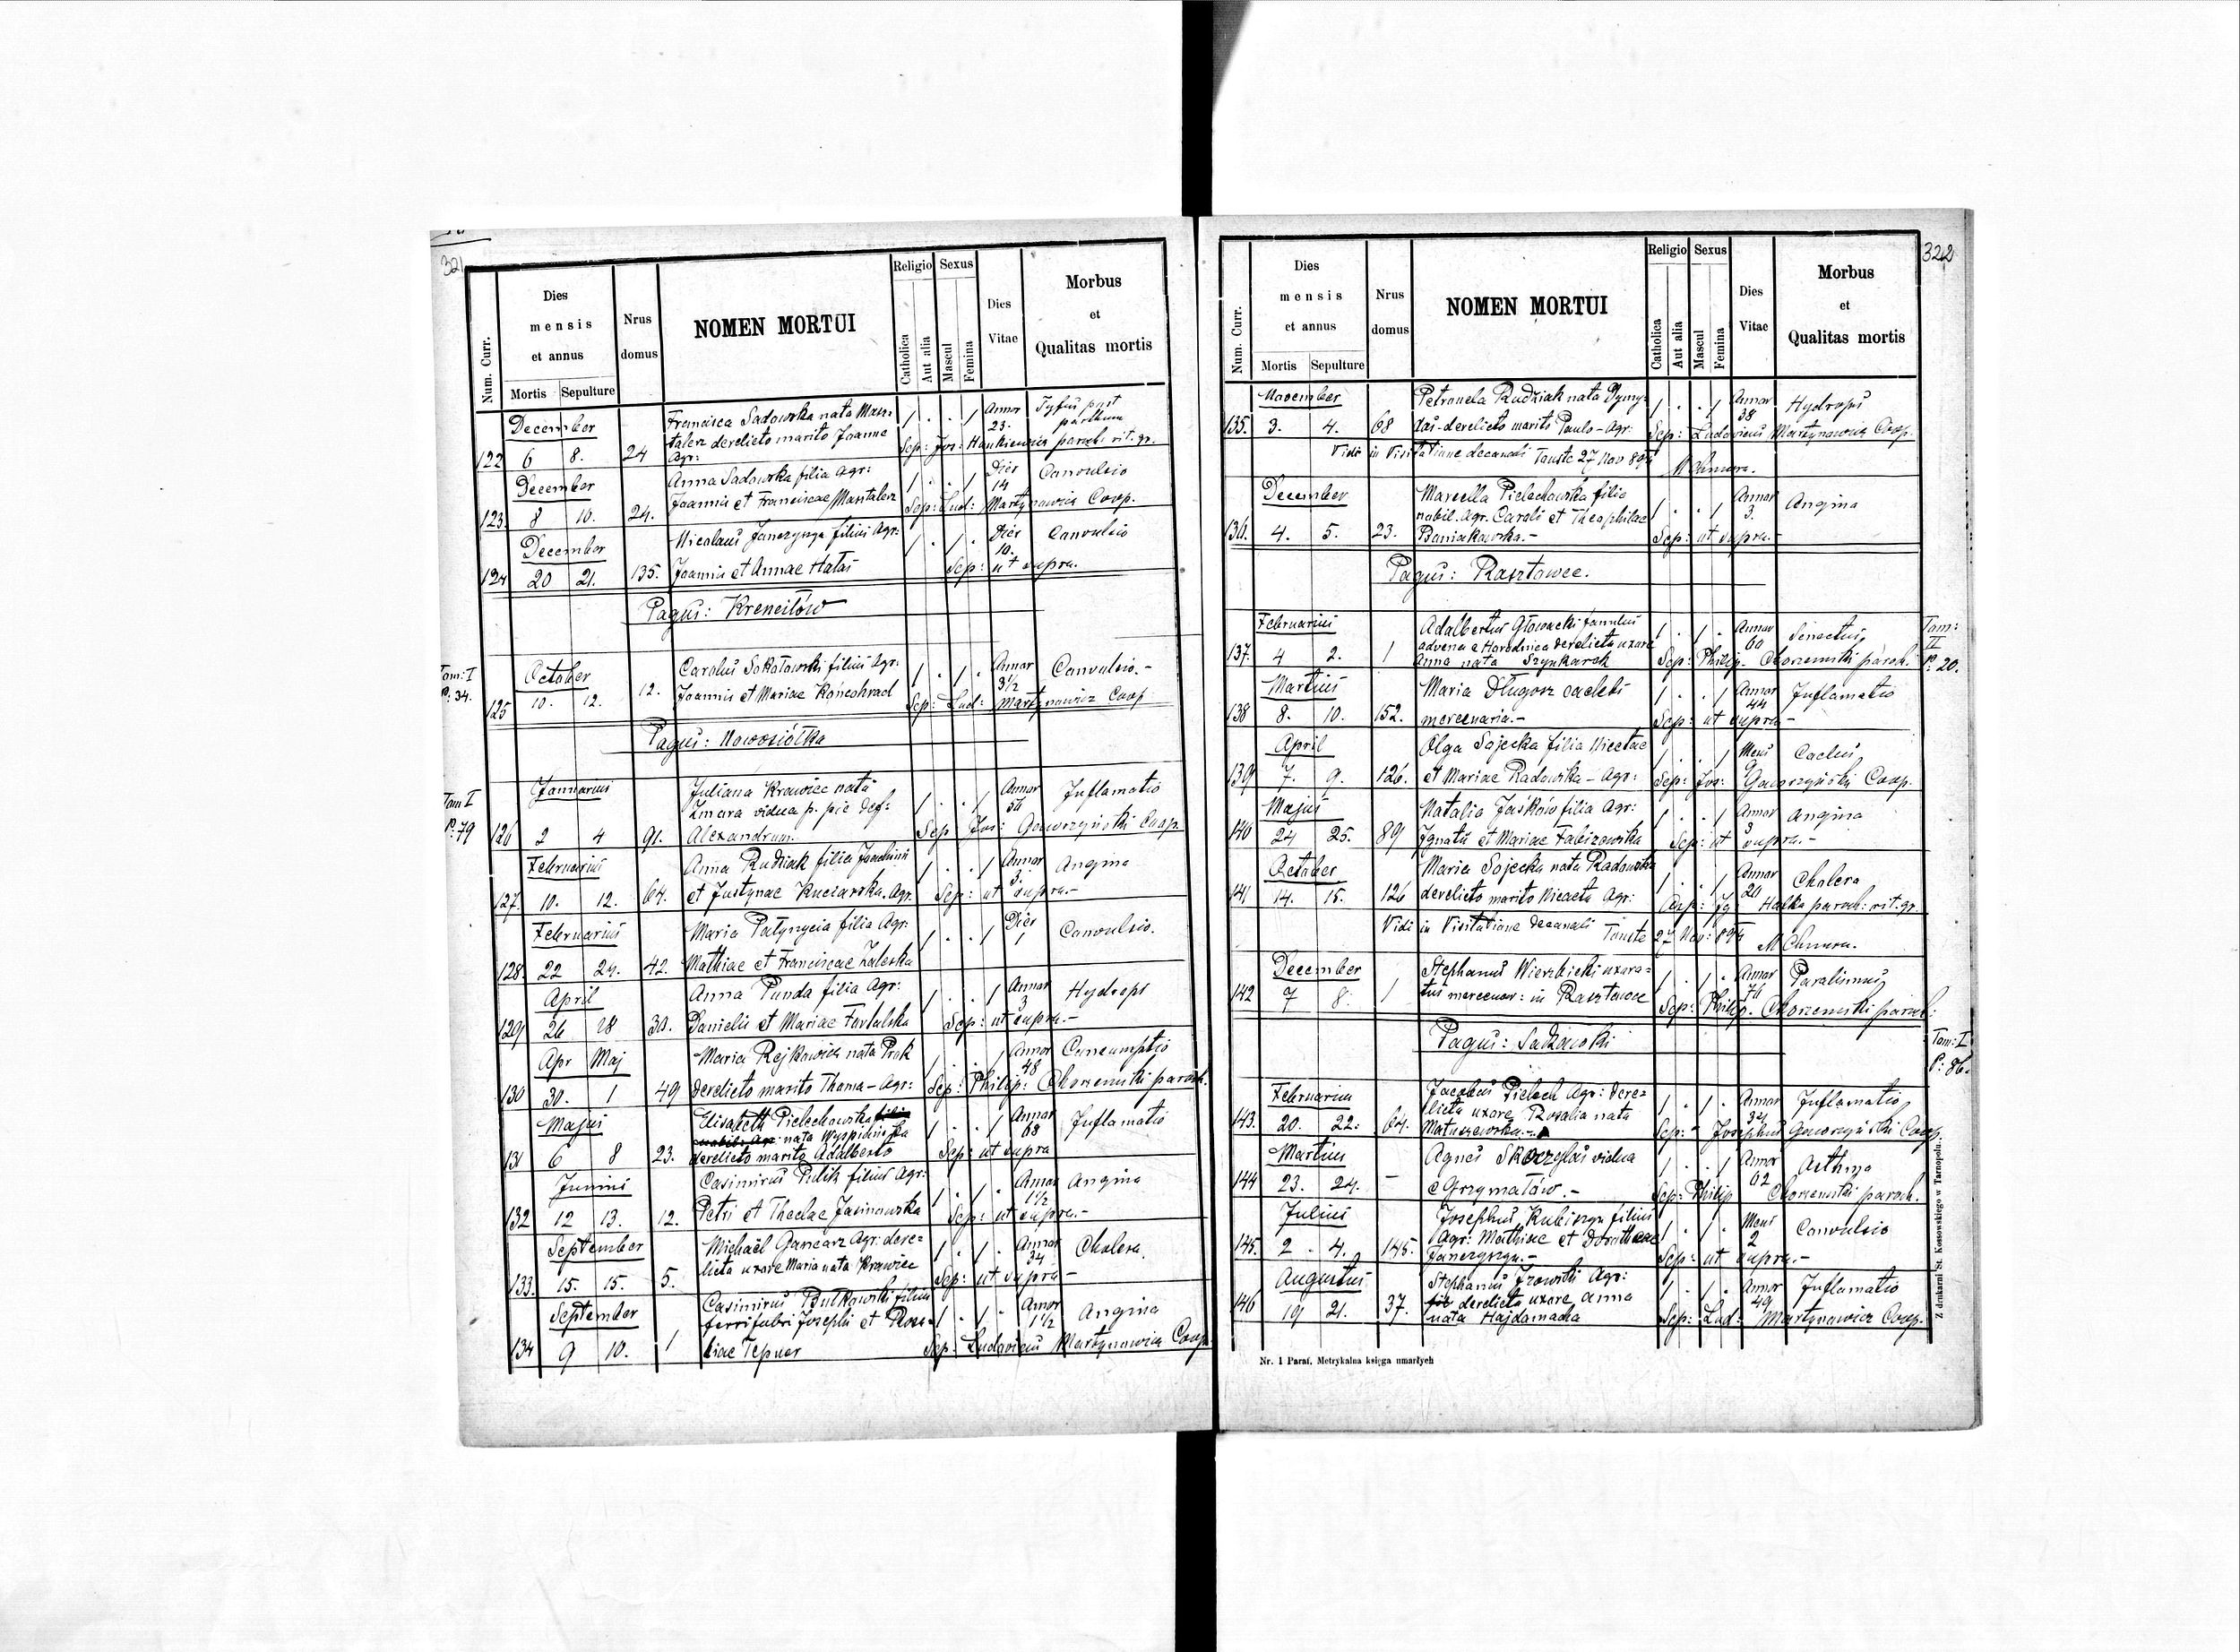 321
Num. Curr.
Dies mensis et annus
Mortis
Sepulture
Nrus domus
NOMEN MORTUI
Religio
Catholica
Aut alia
Sexus
Mascul
Femina
Dies Vitae
Morbus et Qualitas mortis
December
Francisca Sadowska nata Masz=
talerz derelicto marito Joanne
Agr:
/ . . / Annor 23. Tyfus post partum
122 6 8. 24 Sep: Jos: Hankiewicz paroch. rit. gr.
December
Anna Sadowska filia agr:
/ . . / Dier 14 Convulsio
123. 8 10. 24. Joannis et Franciscae Masztalerz Sep: Lud: Martynowicz Coop.
December
Nicolaus Janczyszyn filius Agr:
/ . / . Dier 10. Convulsio
124 20 21. 135. Joannis et Annae Hataś Sep: ut supra.
Pagus: Krencilów
Tom: I
P: 34.
October
Carolus Sokołowski filius Agr:
/ . / . Annor 3 1/2 Convulsio.-
125 10. 12. 12. Joannis et Mariae Końcohrad Sep: Lud: Martynowicz Coop
Pagus: Nowosiółka
Tom I
P: 79
Januarius
Juliana Krawiec nata
Zmora vidua p. pie def=
/ . . / Annor 56 Inflamatio
126 2 4 91. Alexandrum. Sep Jos: Gaworzyński Coop
Februarius
Anna Rudziak filia Joachimi
/ . . / Annor 3. Angina
127. 10. 12. 64. et Justynae Kuciarska. Agr. Sep: ut supra.-
Februarius
Maria Patynycia filia Agr:
/ . . / Dier 1 Convulsio.
128. 22 24. 42. Mathiae et Franciscae Zaleska
April
Anna Punda filia Agr:
/ . . / Annor 3 Hydrops
129 26 28 30. Danielis et Mariae Towalska Sep: ut supra.-
Apr Maj
Maria Rejkowicz nata Prok
/ . . / Annor 48 Consumptio
130 30. 1 49 derelicto marito Thoma - Agr: Sep: Philip: Chorzemski paroch.
Majus
Elisabeth Pielechowska filia
nobil: Agr. nata Wyspiańska
/ . . / Annor 68 Inflamatio
131 6 8 23. derelicto marito Adalberto Sep: ut supra
Junius
Casimirus Pulik filius Agr:
/ . / . Annor 1 1/2 Angina
132 12 13. 12. Petri et Theclae Jasinowska Sep: ut supra.-
September
Michaël Garncarz Agr: dere=
/ . / . Annor 34 Cholera.
133. 15. 15. 5. licta uxore Maria nata Krawiec Sep: ut supra -
September
Casimirus Butkowski filius
ferrifabri Josephi et Rosa=
/ . / . Annor 1 1/2 Angina
134 9 10. 1 liae Tepner Sep: Ludovicus Martynowicz Coop.
322
Num. Curr.
Dies mensis et annus
Mortis
Sepulture
Nrus domus
NOMEN MORTUI
Religio
Catholica
Aut alia
Sexus
Mascul
Femina
Dies Vitae
Morbus et Qualitas mortis
November
Petronela Rudziak nata Dymy=
/ . . / Annor 38 Hydrops
135. 3. 4. 68 derelicto marito Paulo - Agr: Sep: Ludovicus Martynowicz Coop.
Vidi in Visitatione decanali Touste 27 Nov 894 M Chmura.
December
Marcella Pielechowska filia
nobil. Agr. Caroli et Theophilae
/ . . / Annor 3. Angina
136. 4. 5. 23. Baniakowska.- Sep: ut supra.-
Pagus: Rasztowce.
Tom:
II
P: 20.
Februarius
Adalbertus Głowacki famulus
advena e Horodnica derelicta uxore
/ . / . Annor 60 Senectus,
137. 4 2. 1 Anna nata Szynkarek Sep: Philip. Chorzemski paroch.
Martius
Maria Długosz caelebs
/ . . / Annor 44 Inflamatio
138 8. 10. 152. mercenaria.- Sep: ut supra -
April
Olga Sojecka filia Nicetae
/ . . / Mens
139 7. 9. 126. et Mariae Radowska - Agr: Sep: Jos: Gaworzyński Coop.
Majus
Natalia Jaśków filia Agr:
/ . . / Annor 3 Angina
140 24 25. 89 Ignatii et Mariae Fabizowska Sep: ut supra.-
October
Maria Sojecka nata Radowska
/ . . / Annor 20 Cholera
141 14. 15. 126 derelicto marito Nicaeta Agr: Sep: Ig: Halka paroch: rit. gr.
Vidi in Visitatione decanali Touste 27 Nov: 894 M Chmura.
December
Stephanus Wierzbicki uxora=
/ . / . Annor 76 Paralismus,
142 7 8. 1 tus mercenar: in Rasztowce Sep: Philip. Chorzemski paroch:
Pagus: Sadzawki
Tom: I
P: 86.
Februarius
Jacobus Pielech Agr: dere=
licta uxore Rosalia nata
/ . / . Annor 34 Inflamatio,
143. 20. 22. 64. Matuszewska.- Sep: Josephus Gaworzyński Coop.
Martius
Agnes Skorzyłas vidua
/ . . / Annor 62 Asthma
144 23. 24. - e Grzymałów.- Sep: Philip Chorzemski paroch.
Julius
Josephus Kubiszyn filius
Agr: Mathiae et Dorotheae
/ . / . Mens 2 Convulsio
145. 2. 4. 145. Janczyszyn.- Sep: ut supra.-
Augustus
Stephanus Izowski Agr:
derelicta uxore Anna
/ . / . Annor 49 Inflamatio
146 19 21. 37. nata Hajdamacha Sep: Lud: Martynowicz Coop.
Nr. 1 Paraf. Metrykalna księga umarłych
Z drukarni St. Kossowskiego w Tarnopolu.